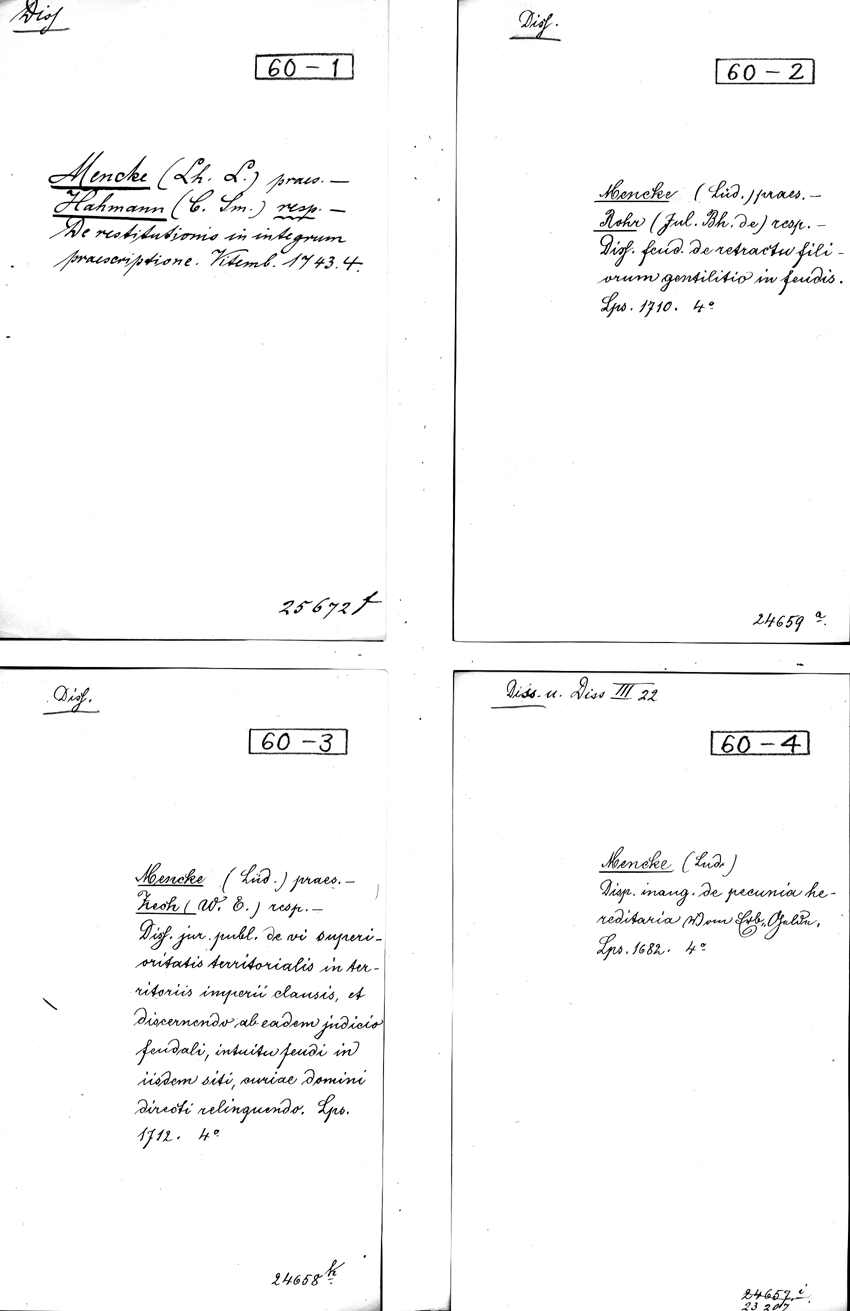 Diss
60-1
Mencke (Lh. L.) praes. —
Hahmann (C. Sm.) resp. —
De restitutionis in integrum
praescriptione. Vitemb. 1743. 4.
25672 f
Diss.
60-2
Mencke (Lüd.) praes. —
Rohr (Jul. Bh. de) resp. —
Diss. feud. de retractu fili-
orum gentilitio in feudis.
Lps. 1710. 4°
24659 a.
Diss.
60-3
Mencke (Lüd.) praes. —
Zech (W. E.) resp. —
Diss. jur. publ. de vi superi-
oritatis territorialis in ter-
ritoriis imperii clausis, et
discernendo ab eadem judicio
feudali, intuitu feudi in
iisdem siti, curiae domini
directi relinquendo. Lps.
1712. 4°
24658 k.
Diss. u. Diss III 22
60-4
Mencke (Lud.)
Disp. inaug. de pecunia he-
reditaria Vom Erb-Gelde.
Lps. 1682. 4°
24657. i
23 207